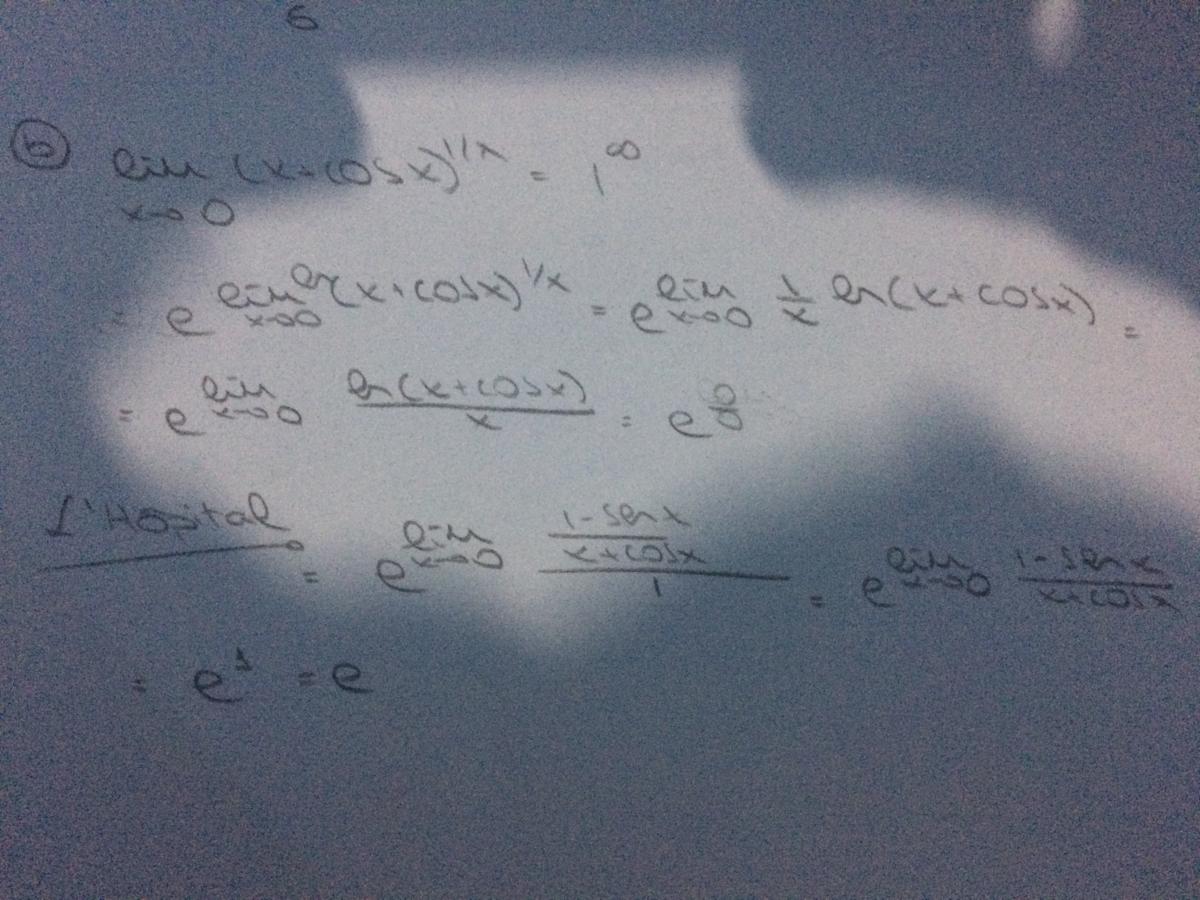 6
ⓑ lim x→0 (x+cosx)^1/x = 1^∞
= e^lim x→0 ln(x+cosx)^1/x = e^lim x→0 1/x ln(x+cosx) =
= e^lim x→0 ln(x+cosx)/x = e^0/0
L'Hopital = e^lim x→0 ((1-senx)/(x+cosx))/1 = e^lim x→0 (1-senx)/(x+cosx)
= e^1 = e